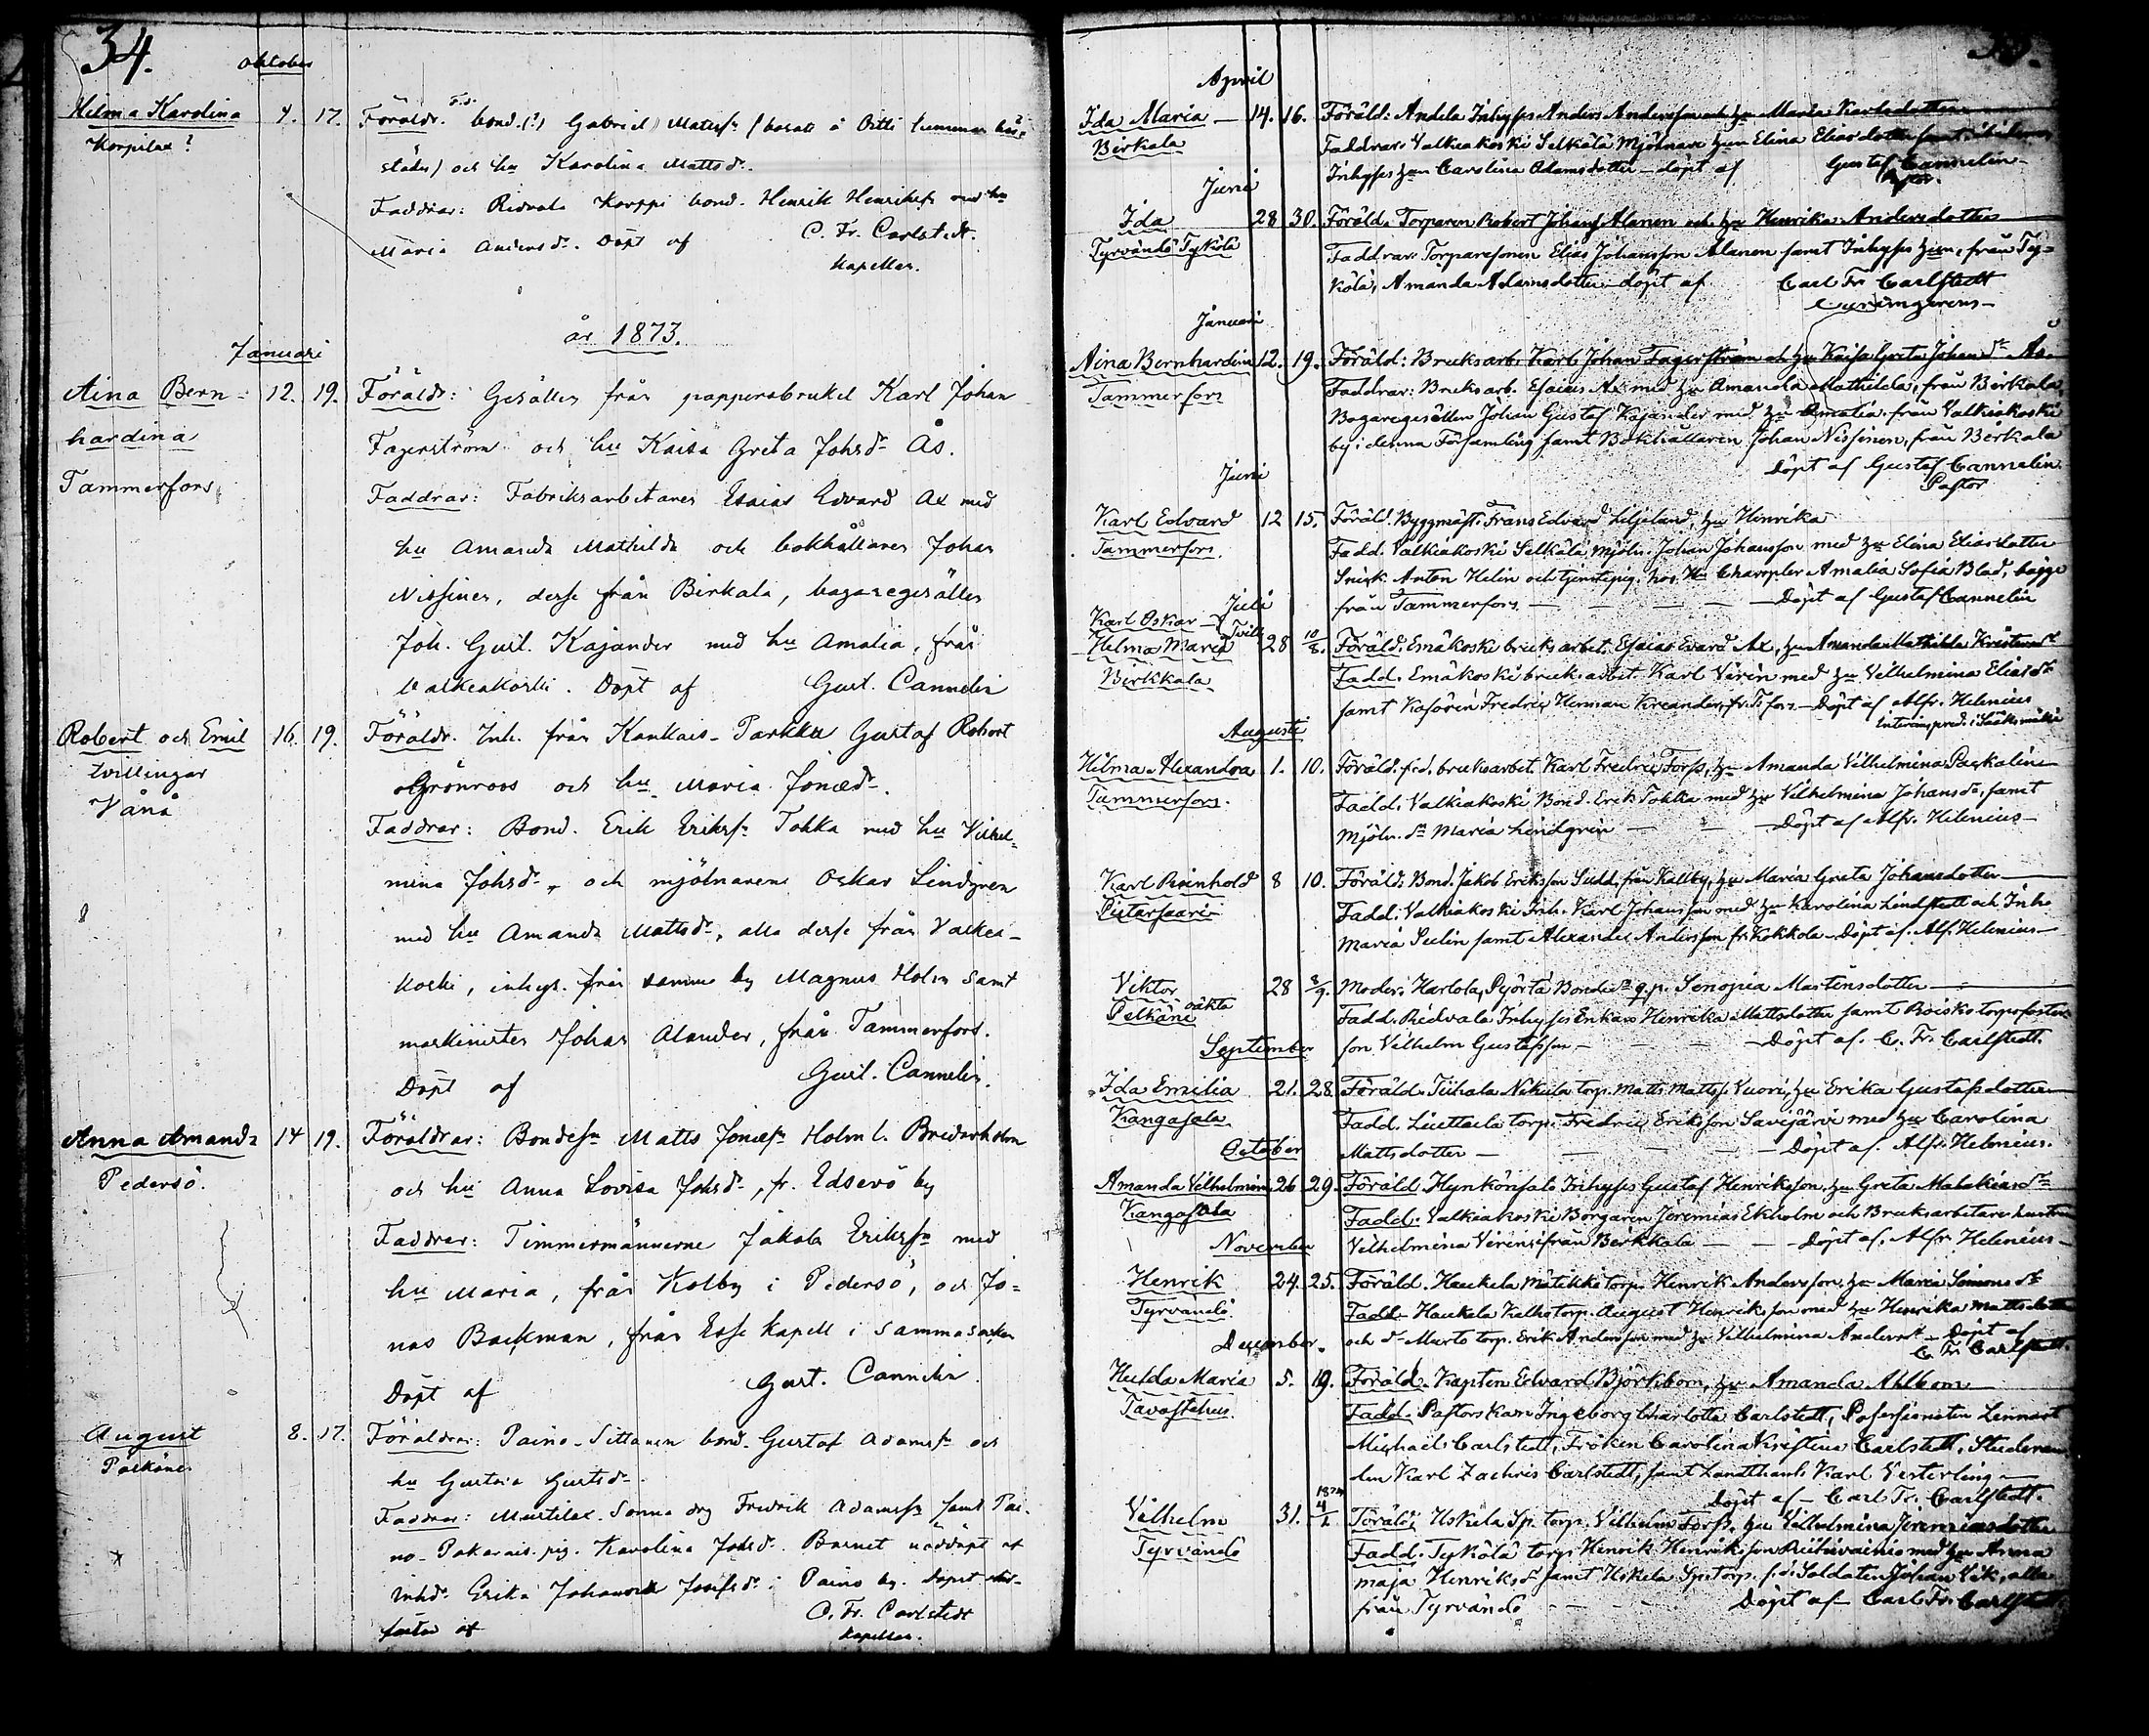 34.
Oktober
Hilma Karolina 4. 17. Föräldr. f.d. bond. (?) Gabriel Matsn (bosatt å Ditti
Korpilax?
städes) och hu Karolina Mattsdr.
Faddrar: Ridvala Korppi bond. Henrik Henriksn med hu
Maria Andersdr. Döpt af C. Fr. Carlstedt.
Kapellan.
år 1873.
Januari
Aina Bern- 12. 19. Föräldr: Gesällen från pappersbruket Karl Johan
hardina Fagerström och hu Kaisa Greta Johsdr Ås.
Tammerfors. Faddrar: Fabriksarbetaren Esaias Edvard Ax med
hu Amanda Mathilda och bokhållaren Johan
Nissinen, desse från Birkala, bagaregesällen
Joh. Gust. Kajander med hu Amalia, från
Valkeakoski. Döpt af Gust. Cannelin
Robert och Emil 16. 19. Föräldr. Inh. från Kankais-Parkku Gustaf Robert
tvillingar Grönroos och hu Maria Jonædr.
Vånå
Faddrar: Bond. Erik Eriksn Tokka med hu Vilhel-
mina Johsdr, och mjölnaren Oskar Lindgren
med hu Amanda Mattsdr, alla desse från Valkea-
koski, inhys. från samma by Magnus Holm samt
maskinisten Johan Alander, från Tammerfors.
Döpt af Gust. Cannelin.
Anna Amanda 14 19. Föräldrar: Bondesn Matts Jonæsn Holm l. Brederholm
Pedersö. och hu Anna Lovisa Johsdr, fr. Edsevö by
Faddrar: Timmermännerne Jakob Eriksn med
hu Maria, från Kolby i Pedersö, och Jo-
nas Backman, från Esse kapell i samma socken
Döpt af Gust. Cannelin.
August 8. 17. Föräldrar: Paino-Sittanen bond. Gustaf Adamsn och
Pälkäne hu Gustava Gustsdr.
Faddrar: Muutilax. Sonna drg Fredrik Adamsn samt Pai-
no-Pakarais. pig. Karolina Johsdr. Barnet nöddöpt af
Inhd. Erika Johannæ Josefsdr i Paino by. Döpet
af C. Fr. Carlstedt
Kapellan.
April
Ida Maria — 14. 16. Föräld: Andela Inhyses Anders Andersson och hu Maria Karlsdotter
Birkala Faddrar: Valkiakoski Selkälä Mjölnare hun Elina Eliasdotter samt
Inhyses hun Carolina Adamsdotter — döpt af Gustaf Cannelin
Pastor.
Juni
Ida 28 30. Föräld. Torparen Robert Johansf Alanen och hu Henrika Andersdotter
Tyrväntö Tykölä Faddrar: Torparesonen Elias Johansson Alanen samt Inhyses hun, från Ty-
kölä, Amanda Adamsdotter — döpt af Carl Fr. Carlstedt
Curamgerens —
Januari
Aina Bernhardina 12. 19. Föräld: Bruksarb. Karl Johan Fagerström och hu Kaisa Greta Johansdr Ås.
Tammerfors Faddrar: Bruksarb. Esaias Ax med hu Amanda Mathilda, från Birkala,
Bagaregesällen Johan Gustaf Kajander med hu Amalia från Valkiakoski
by i denna Församling samt Bokhållaren Johan Nissinen, från Birkala
Döpt af Gustaf Cannelin
Pastor
Juni
Karl Edvard 12 15. Föräld. Byggmäst. Frans Edvard Liljelund, hu Henrika
Tammerfors. Fadd. Valkiakoski Selkälä mjöln. Johan Johansson med hu Elina Eliasdotter
Snick. Anton Helin och tjenstepig. hos Hr Charpler Amalia Sofia Blad, bägge
från Tammerfors — Döpt af Gustaf Cannelin
Juli
Karl Oskar —
Hilma Maria Tvill 28 10/8. Föräld. Emäkoski bruksarbet. Esaias Evard Ax, hu Amanda Mathilda Kristersdr
Birkkala Fadd. Emäkoski bruksarbet. Karl Virén med hu Vilhelmina Eliasdr
samt Kasören Fredric Herman Kreander, fr. T.fors — Döpt af Alfr. Helenius
interimspred. i Sääksmäki
Augusti
Hilma Alexandra 1. 10. Föräld. f.d. bruksarbet. Karl Fredric Forss, hu Amanda Vilhelmina Paskalin
Tammerfors. Fadd. Valkiakoski Bond. Erik Tokka med hu Vilhelmina Johansdr, samt
Mjöln. dr Maria Lindgrén — Döpt af Alfr. Helenius —
Karl Reinhold 8 10. Föräld. Bond. Jakob Eriksson Sudd, från Kållby, hu Maria Greta Johansdotter —
Pietarsaari Fadd. Valkiakoski Inh. Karl Johansson med hu Karolina Lindstedt och Inh.
Maria Selin samt Alexander Andersson fr. Kokkola — Döpt af. Alf. Helenius —
Viktor oäkta 28 3/9. Moder: Harlola, Pyörtä Bondedr q.p. Senopia Martinsdotter —
Pelkäne Fadd. Ridvala Inhyses Enkan Henrika Mattsdotter samt
son Vilhelm Gustafsson — Döpt af. C. Fr. Carlstedt.
September
Ida Emilia 21. 28. Föräld. Tiihala Nikula torp. Matts Mattsf. Vuori, hu Erika Gustafsdotter
Kangasala Fadd. Liuttula torp. Fredric Eriksson Savijärvi med hu Carolina
Mattsdotter — Döpt af. Alfr. Helenius.
October
Amanda Vilhelmina 26 29. Föräld. Hynkönsalo Inhyses Gustaf Henriksson, hu Greta Malakiasdr
Kangasala Fadd. Valkiakoski Borgaren Jeremias Ekholm och Bruksarbetare hustru
Vilhelmina Viréni från Berkkala — Döpt af. Alfr. Helenius —
November
Henrik 24. 25. Föräld. Haukela Mätikkö torp. Henrik Andersson, hu Maria Simonsdr
Tyrväntö. Fadd. Haukela Kalho torp. August Henriksson med hu Henrika Mattsdotter
och dr Murto torp. Erik Andersson med hu Vilhelmina Andersdr — Döpt af
C. Fr. Carlstedt.
December.
Hulda Maria 5. 19. Föräld. Kapten Edvard Björkbom, hu Amanda Ahlbom —
Tavastehus. Fadd. Pastorskan Ingeborg Charlotta Carlstedt, Possessionaten Lennart
Michael Carlstedt, Fröken Carolina Kristina Carlstedt, Studeran-
den Karl Zachris Carlstedt, samt Lanthanl. Karl Vesterling —
Döpt af — Carl Fr. Carlstedt.
Vilhelm 31. 1874 4/1. Föräld; Uskila Sp. torp. Vilhelm Forss, hu Vilhelmina Jeremiasdotter
Tyrväntö Fadd. Tykölä torp. Henrik Henriksson med hu Anna
Maja Henriksdr samt Uskila Sp. torp. f.d. Soldaten Johan Vik, alla
från Tyrväntö — Döpt af — Carl Fr. Carlstedt.